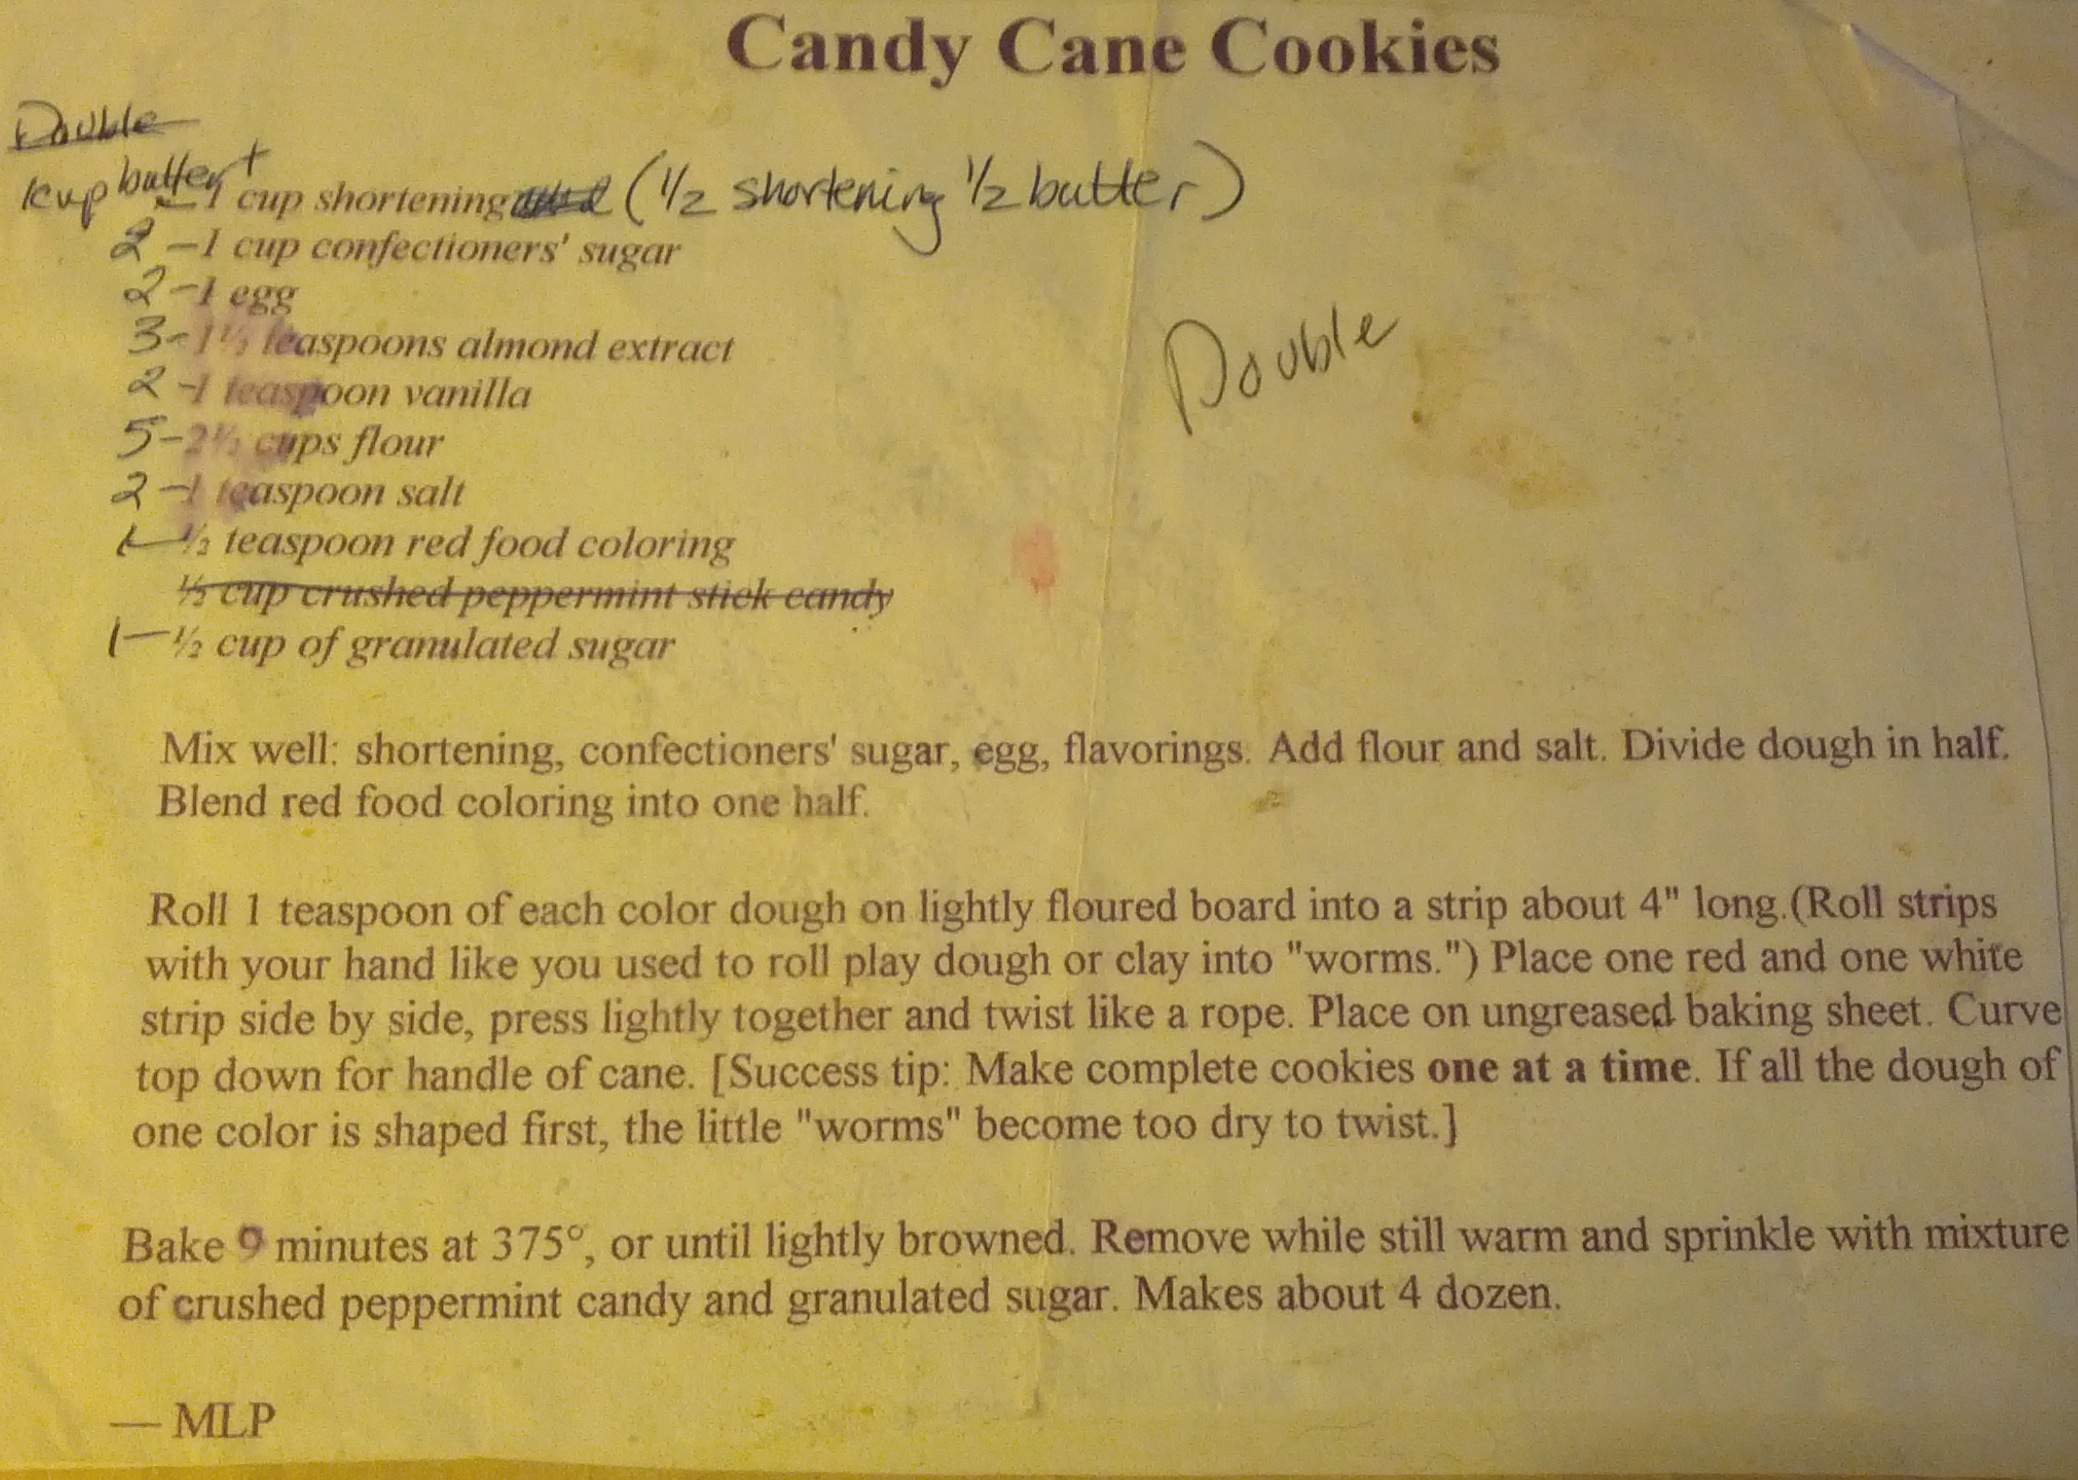 Candy Cane Cookies
Double
1 cup butter +
1 cup shortening (1/2 shortening 1/2 butter)
2 - 1 cup confectioners' sugar
2 - 1 egg
3 - 1½ teaspoons almond extract
2 - 1 teaspoon vanilla
Double
5 - 2½ cups flour
2 - 1 teaspoon salt
1 - ½ teaspoon red food coloring
cup crushed peppermint stick candy
1 - ½ cup of granulated sugar
Mix well: shortening, confectioners' sugar, egg, flavorings. Add flour and salt. Divide dough in half.
Blend red food coloring into one half.
Roll 1 teaspoon of each color dough on lightly floured board into a strip about 4" long.(Roll strips
with your hand like you used to roll play dough or clay into "worms.") Place one red and one white
strip side by side, press lightly together and twist like a rope. Place on ungreased baking sheet. Curve
top down for handle of cane. [Success tip: Make complete cookies one at a time. If all the dough of
one color is shaped first, the little "worms" become too dry to twist.]
Bake 9 minutes at 375°, or until lightly browned. Remove while still warm and sprinkle with mixture
of crushed peppermint candy and granulated sugar. Makes about 4 dozen.
— MLP